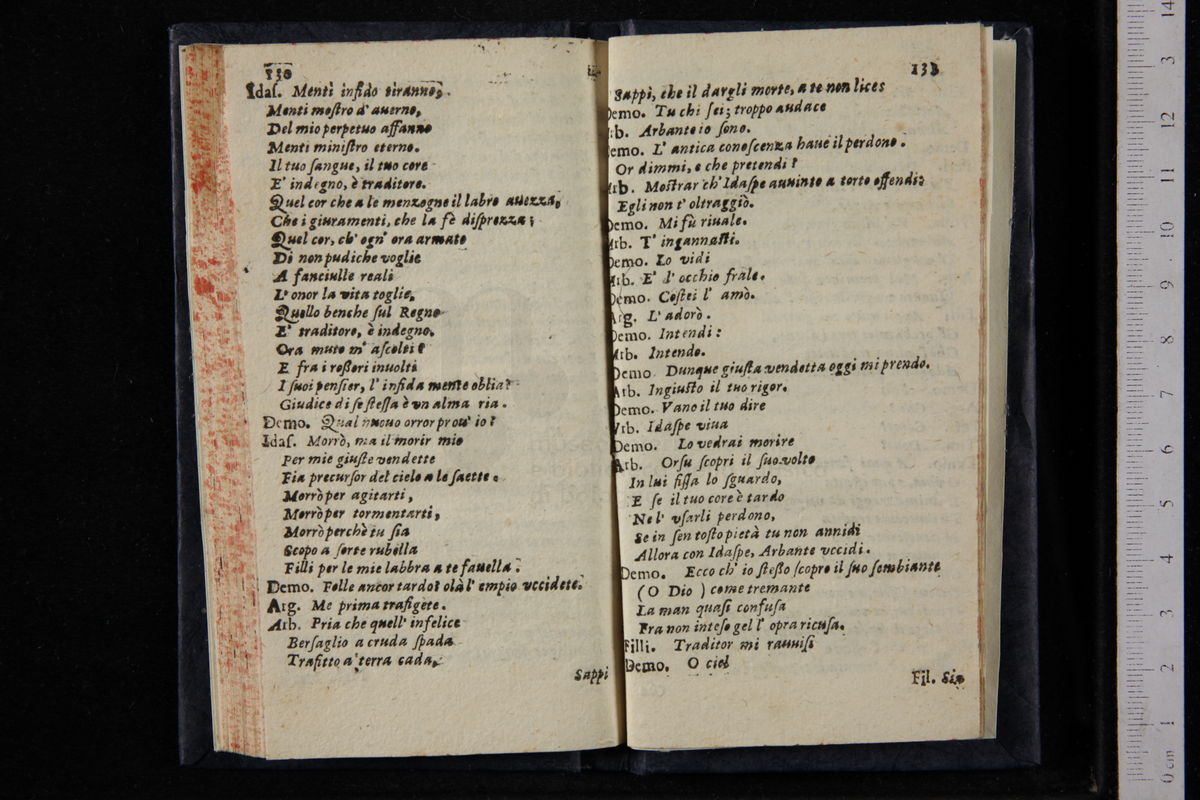 130
Idas. Menti infido tiranno,
Menti mostro d' auerno,
Del mio perpetuo affanno
Menti ministro eterno.
Il tuo sangue, il tuo core
E' indegno, è traditore.
Quel cor che a le menzogne il labro auezza,
Che i giuramenti, che la fè disprezza;
Quel cor, ch' ogn' ora armato
Di non pudiche voglie
A fanciulle reali
L' onor la vita toglie,
Quello benche sul Regno
E' traditore, è indegno.
Ora muto m' ascolti?
E fra i rossori inuolti
I suoi pensier, l' infida mente oblia?
Giudice di se stessa è vn alma ria.
Demo. Qual nuouo orror prou' io?
Idas. Morrò, ma il morir mio
Per mie giuste vendette
Fia precursor del cielo a le saette.
Morrò per agitarti,
Morrò per tormentarti,
Morrò perchè tu sia
Scopo a sorte rubella
Filli per le mie labbra a te fauella.
Demo. Felle ancor tardo? olà l' empio vccidete.
Arg. Me prima trafigete.
Arb. Pria che quell' infelice
Bersaglio a cruda spada
Trafitto a terra cada,
Sappi
133
Sappi, che il dargli morte, a te non lices
Demo. Tu chi sei; troppo audace
Arb. Arbante io sono.
Demo. L' antica conoscenza haue il perdono.
Or dimmi, e che pretendi?
Arb. Mostrar ch' Idaspe auuinto a torto offendi;
Egli non t' oltraggiò.
Demo. Mi fù riuale.
Arb. T' ingannasti.
Demo. Lo vidi
Arb. E' l' occhio frale.
Demo. Costei l' amò.
Arg. L' adorò.
Demo. Intendi:
Arb. Intendo.
Demo. Dunque giusta vendetta oggi mi prendo.
Arb. Ingiusto il tuo rigor.
Demo. Vano il tuo dire
Arb. Idaspe viua
Demo. Lo vedrai morire
Arb. Orsu scopri il suo volto
In lui fissa lo sguardo,
E se il tuo core è tardo
Ne l' vsarli perdono,
Se in sen tosto pietà tu non annidi
Allora con Idaspe, Arbante vccidi.
Demo. Ecco ch' io stesso scopro il suo sembiante
(O Dio) come tremante
La man quasi confusa
Fra non inteso gel l' opra ricusa.
Filli. Traditor mi rauuisi
Demo. O ciel
Fil. Sio